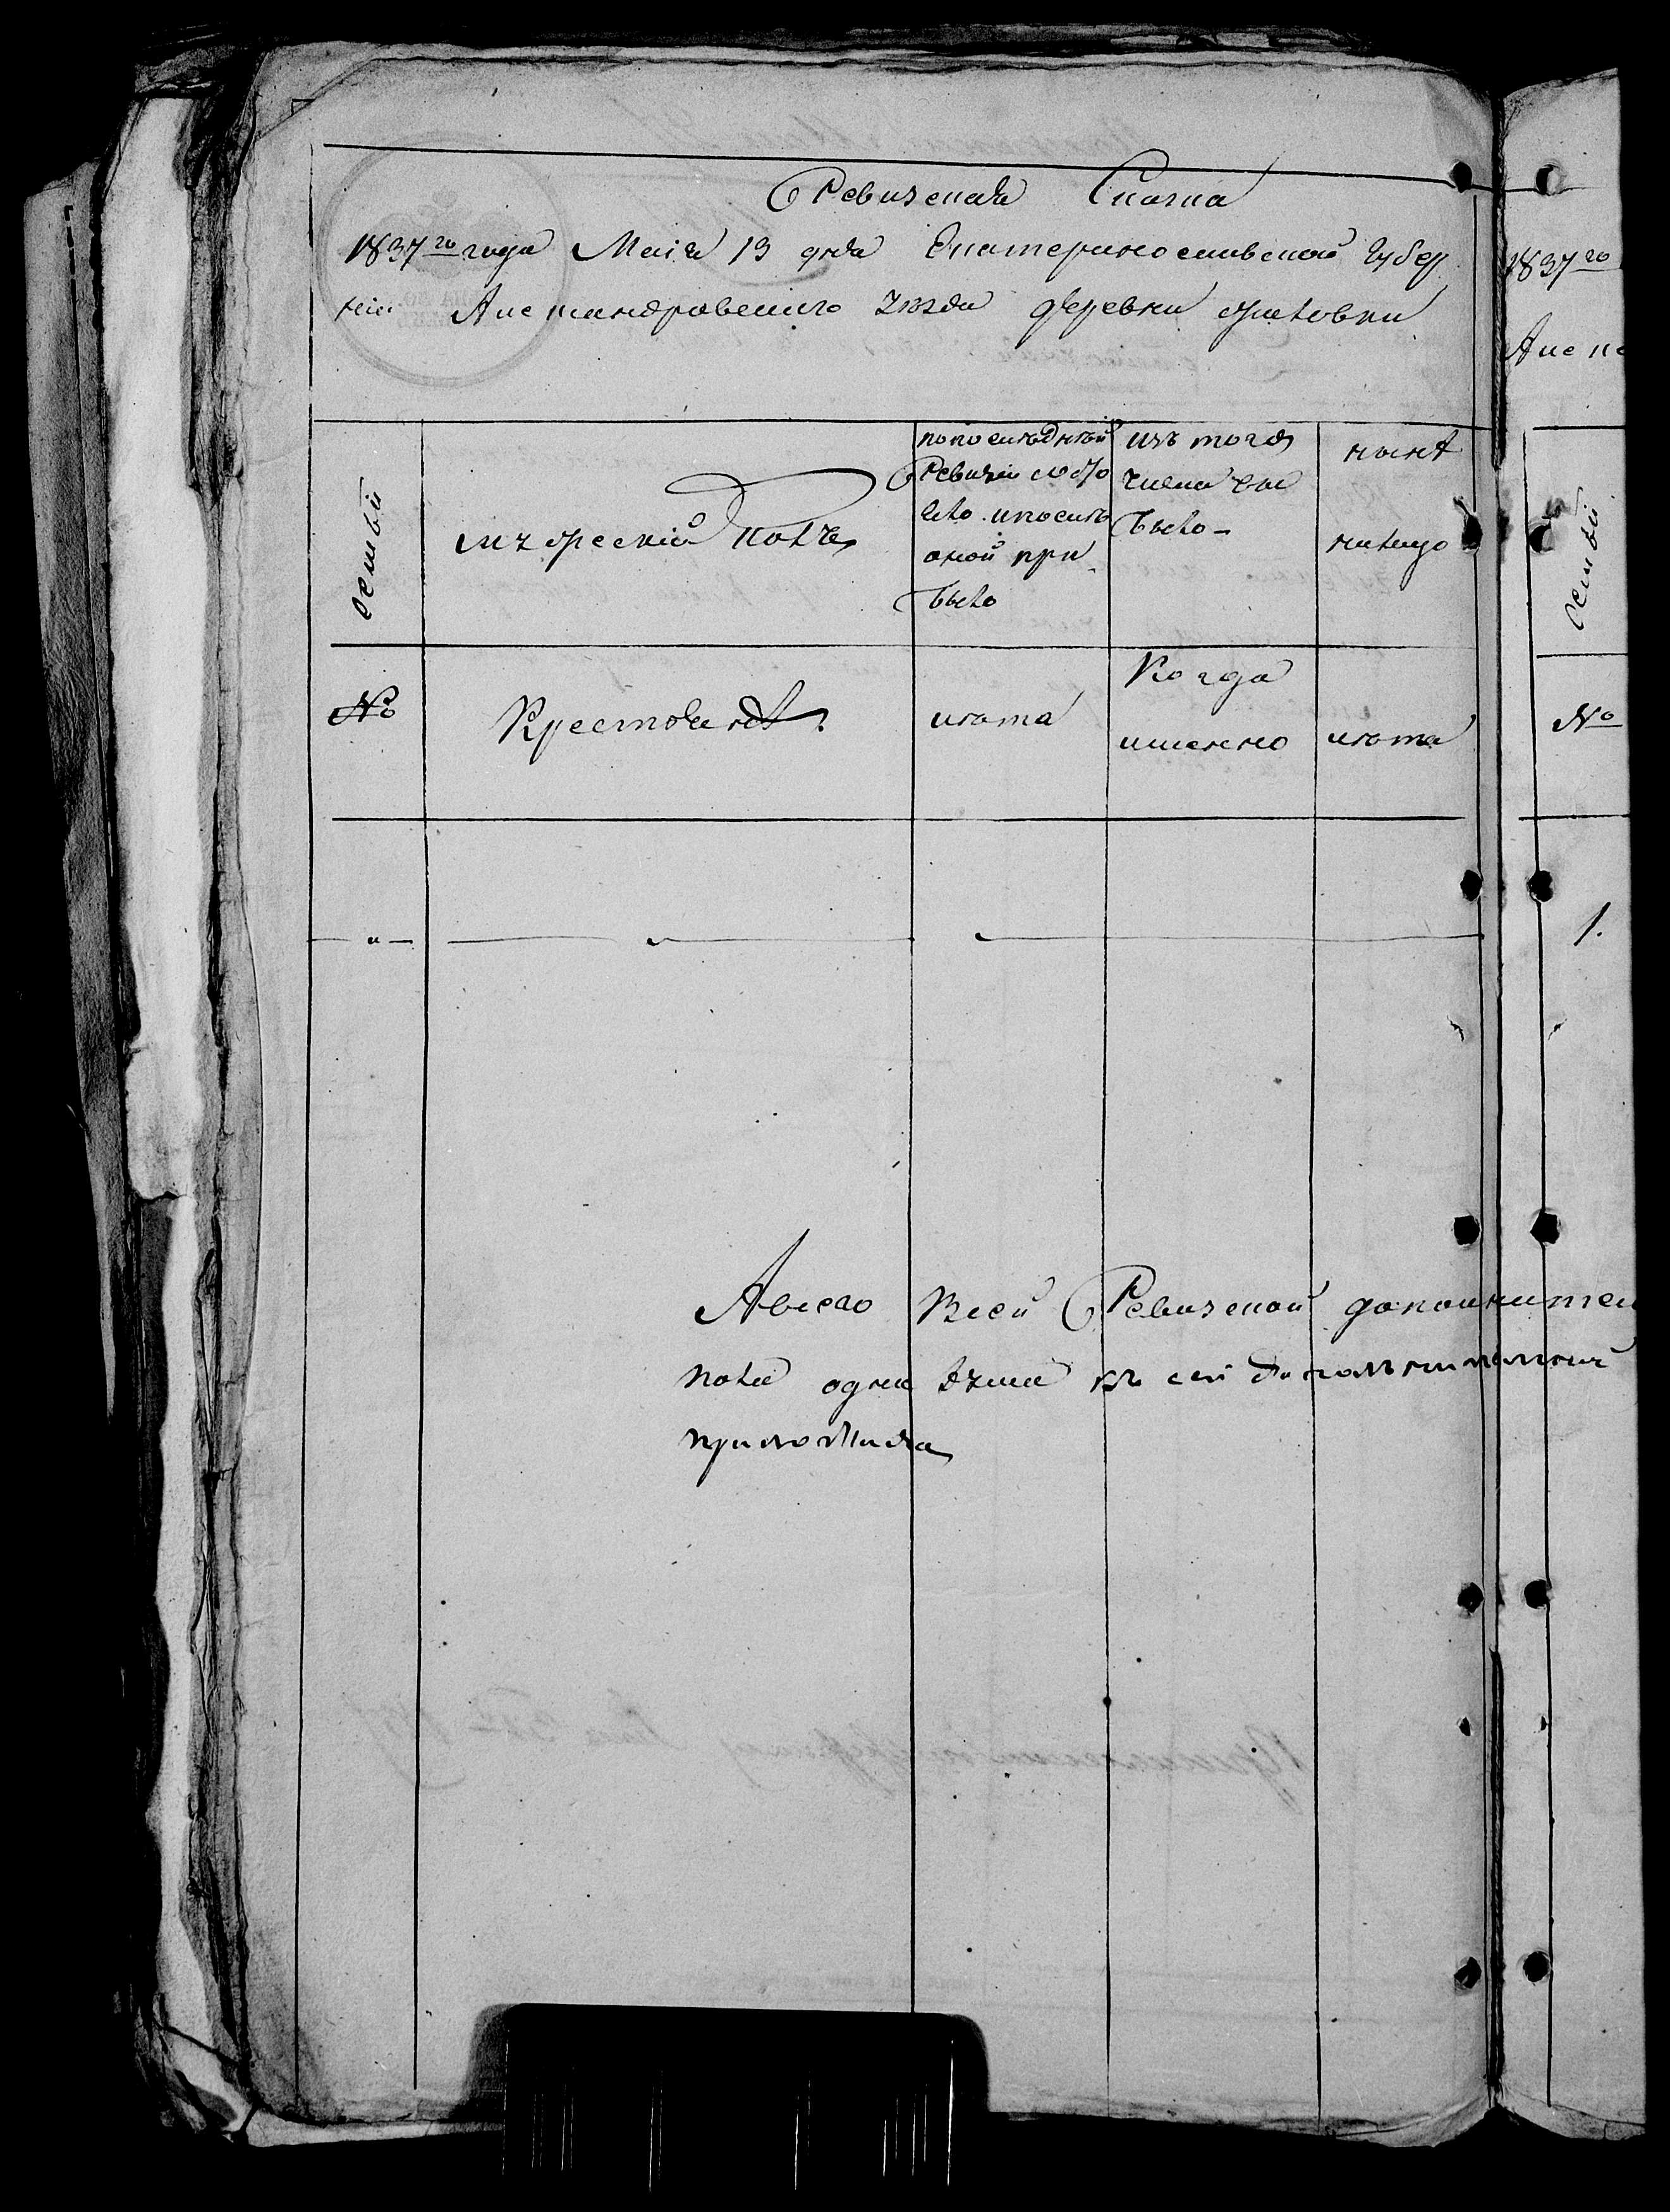 Ревизская Сказка
1837го года Маія 13 дня Екатеринославской Губер
ніи Александровскаго уезда деревни
Семьи
мужескій полъ
по последней
Ревизіи состо
яло и после
оной при
было
изъ того
числа вы
было
ныне
налицо
№
Крестьяне
лета
Когда
именно
лета
Авсего Всей Ревизской дополнител
пола одна душа къ сей
приложила
1837го
Алек
Семьи
№
1.